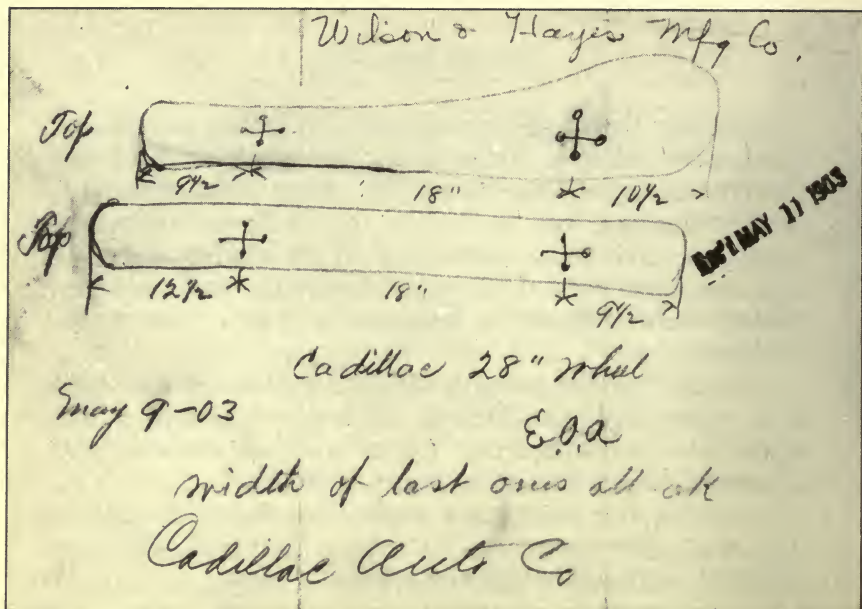 Wilson & Hayes Mfg Co.
Top
9 1/2 18" 10 1/2
Top
12 1/2 18" 9 1/2
Rec'd MAY 11 1903
Cadillac 28" wheel
May 9-03
E.O.A
width of last ones all ok
Cadillac Auto Co